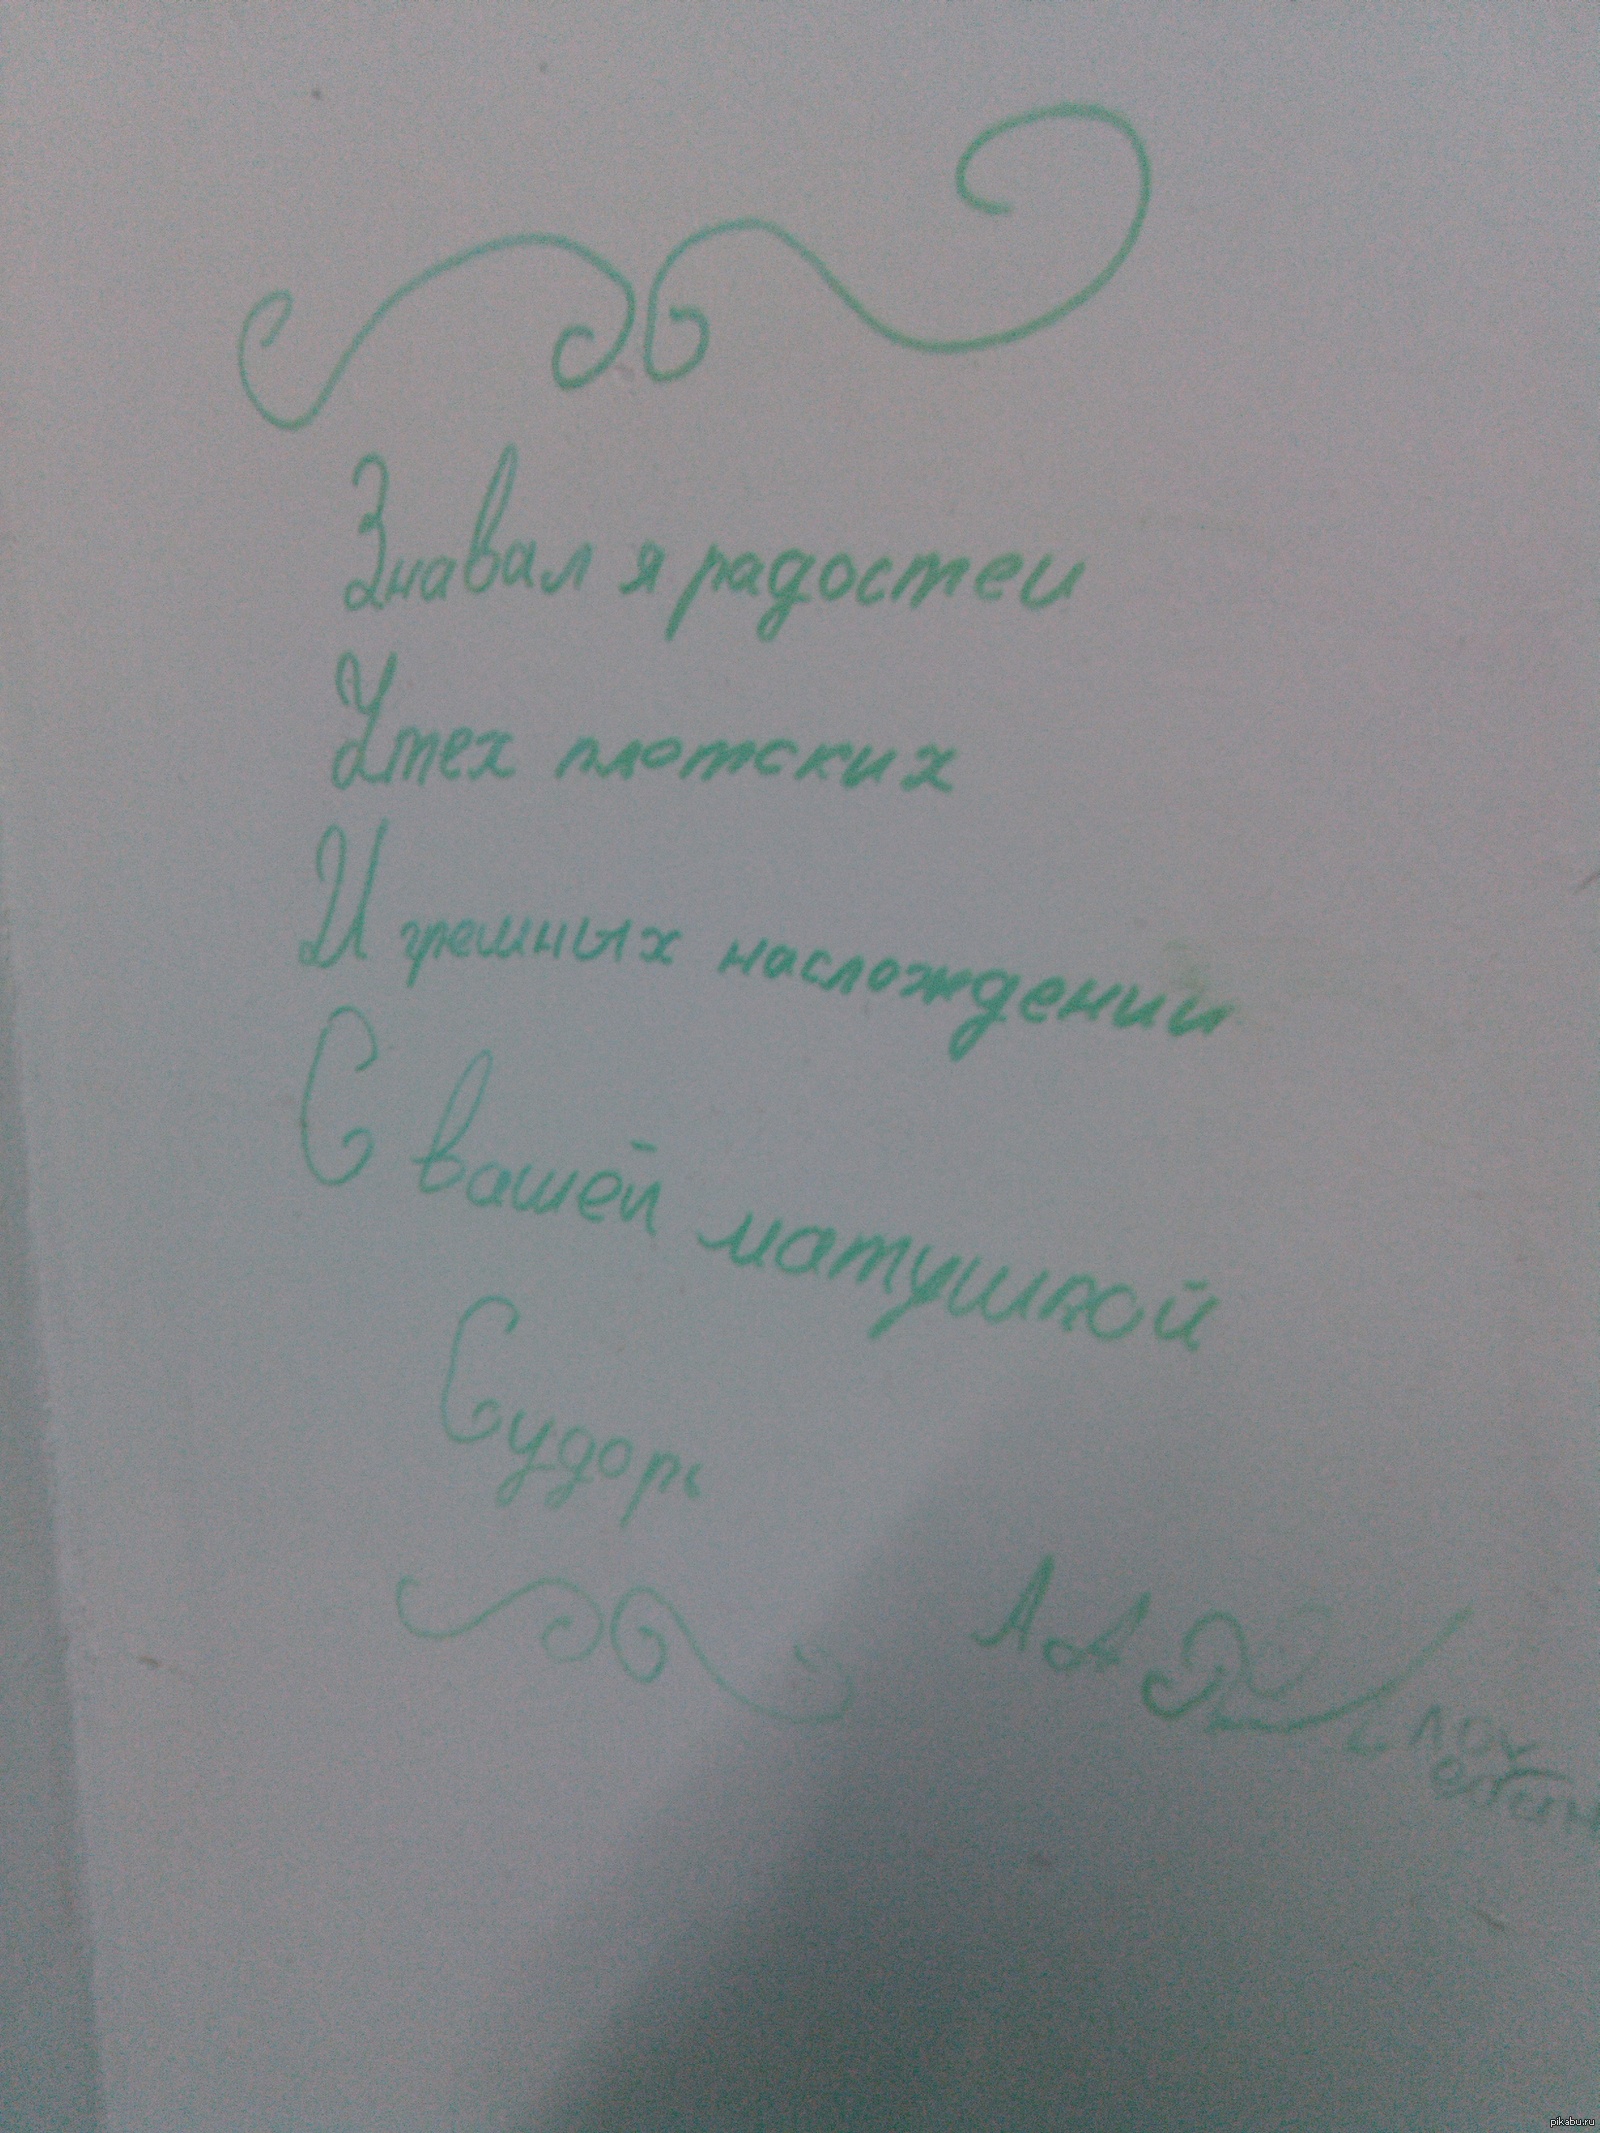 Знавал я радостеи
Утех плотских
И грешных наслождении
С вашей матушкой
Сударь
А А
pikabu.ru